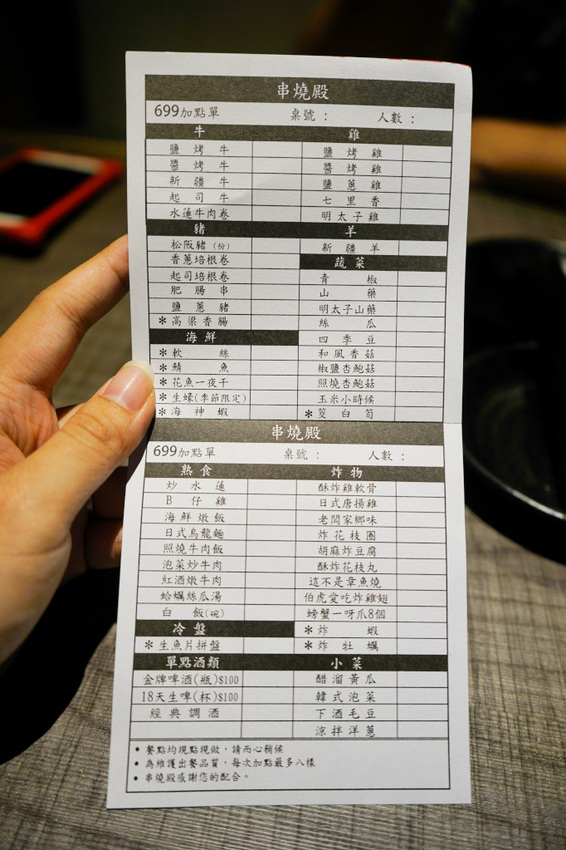 串燒殿
699加點單 桌號： 人數：
牛 雞
鹽烤牛 鹽烤雞
醬烤牛 醬烤雞
新疆牛 鹽蔥雞
起司牛 七里香
水蓮牛肉卷 明太子雞
豬 羊
松阪豬(份) 新疆羊
香蔥培根卷 蔬菜
起司培根卷 青椒
肥腸串 山藥
鹽蔥豬 明太子山藥
*高梁香腸 絲瓜
海鮮 四季豆
*軟絲 和風香菇
*鯖魚 椒鹽杏鮑菇
*花魚一夜干 照燒杏鮑菇
*生蠔(季節限定) 玉米小時候
*海神蝦 *茭白筍
串燒殿
699加點單 桌號： 人數：
熱食 炸物
炒水蓮 酥炸雞軟骨
B仔雞 日式唐揚雞
海鮮燉飯 老闆家鄉味
日式烏龍麵 炸花枝圈
照燒牛肉飯 胡麻炸豆腐
泡菜炒牛肉 酥炸花枝丸
紅酒燉牛肉 這不是章魚燒
蛤蠣絲瓜湯 伯虎愛吃炸雞翅
白飯(碗) 螃蟹一呀爪8個
冷盤 *炸蝦
*生魚片拼盤 *炸牡蠣
單點酒類 小菜
金牌啤酒(瓶)$100 醋溜黃瓜
18天生啤(杯)$100 韓式泡菜
經典調酒 下酒毛豆
涼拌洋蔥
• 餐點均現點現做，請耐心稍候
• 為維護出餐品質，每次加點最多八樣
• 串燒殿感謝您的配合。